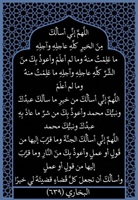 اللهم إني أسألك
من الخير كله عاجله وآجله
ما علمت منه وما لم أعلم وأعوذ بك من
الشر كله عاجله وآجله ما علمت منه
وما لم أعلم
اللهم إني أسألك من خير ما سألك عبدك
ونبيك محمد وأعوذ بك من شر ما عاذ به
عبدك ونبيك محمد
اللهم إني أسألك الجنة وما قرب إليها من
قول أو عمل وأعوذ بك من النار وما قرب
إليها من قول أو عمل
وأسألك أن تجعل كل قضاء قضيته لي خيرا
البخاري (٦٣٩)